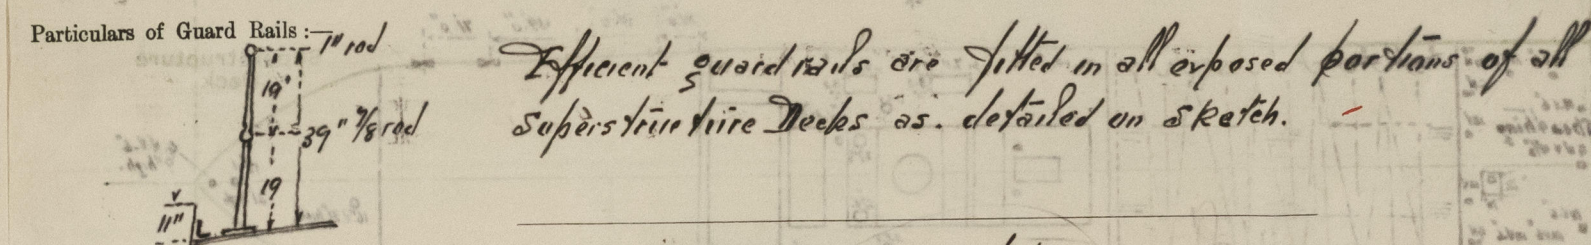 Particulars of Guard Rails :—
1" rod
19"
39" 7/8 rod
19
11"
Efficient guard rails are fitted in all exposed portions of all
superstructure Decks as. detailed on sketch.